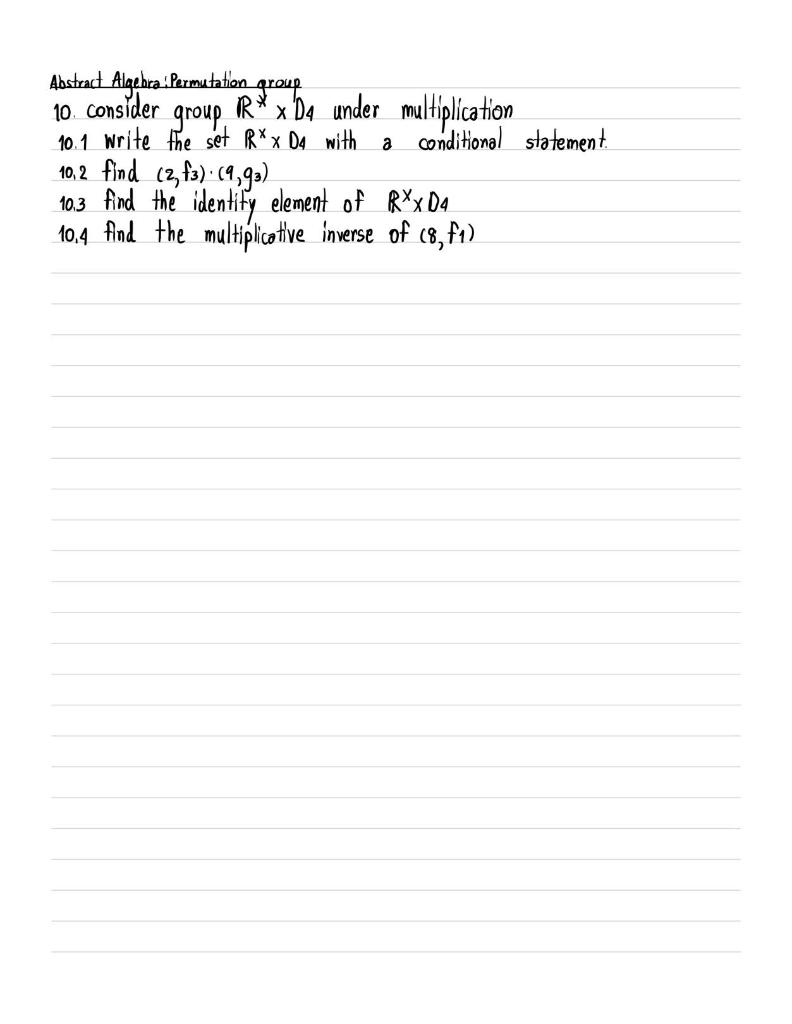 Abstract Algebra : Permutation group
10. Consider group ℝ^× × D4 under multiplication
10.1 Write the set ℝ^× × D4 with a conditional statement.
10.2 find (2,f3)·(9,g3)
10.3 find the identity element of ℝ^× × D4
10.4 find the multiplicative inverse of (8,f1)